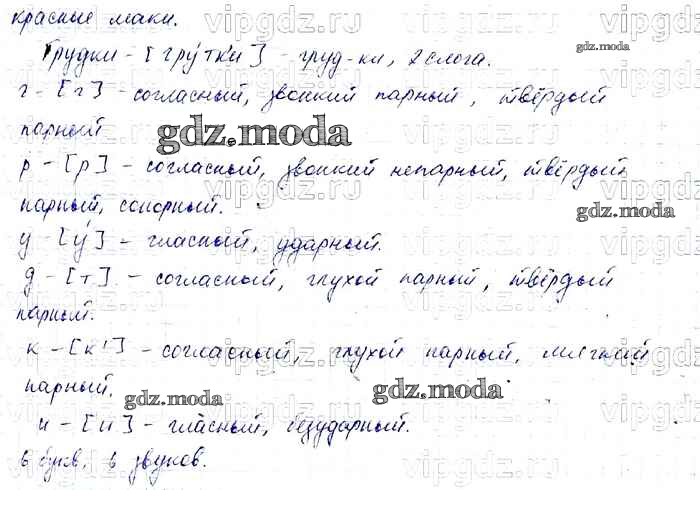 красные маки.
Грудки - [гру́тк'и] - груд-ки, 2 слога.
г - [г] - согласный, звонкий парный, твёрдый
парный
р - [р] - согласный, звонкий непарный, твёрдый
парный, сонорный.
у - [у́] - гласный, ударный.
д - [т] - согласный, глухой парный, твёрдый
парный.
к - [к'] - согласный, глухой парный, мягкий
парный.
и - [и] - гласный, безударный.
6 букв, 6 звуков.
gdz.moda
gdz.moda
gdz.moda
gdz.moda
gdz.moda
vipgdz.ru